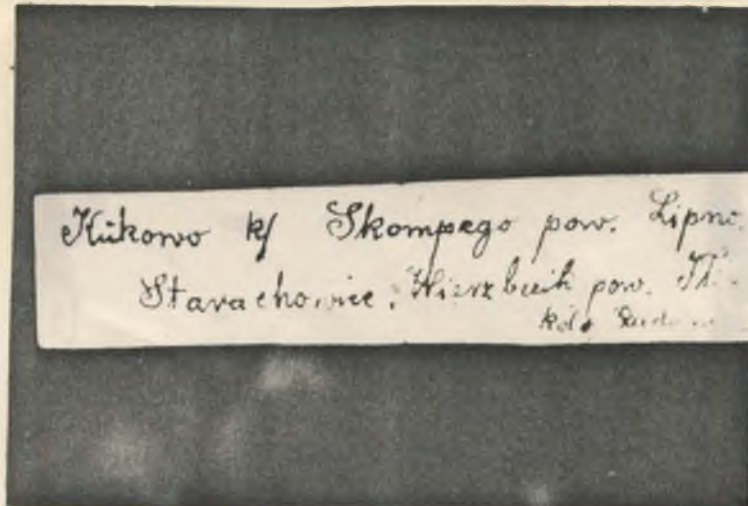 Kükowo k/ Skompego pow. Lipno.
Starachowice, Wierzbnik pow.